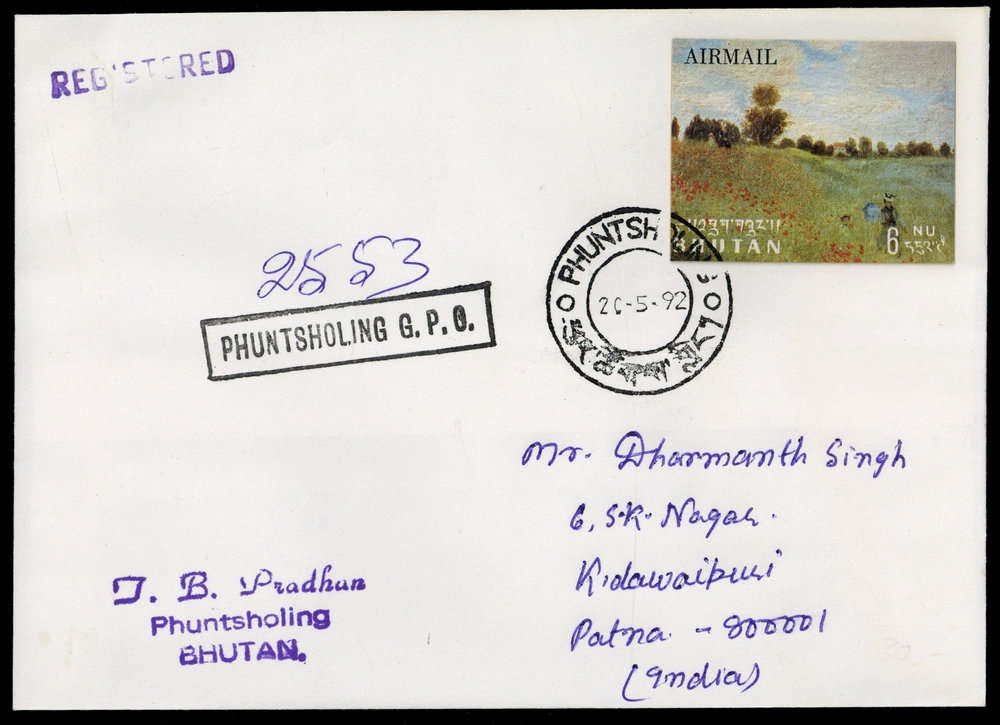 REGISTERED
AIRMAIL
འབྲུག་གཟུང་།།
BHUTAN
6 NU.
PHUNTSHOLING
20-5-92
ཕུན་ཚོགས་གླིང་
PHUNTSHOLING G. P. O.
Mr. Dharmanth Singh
6, S.K. Nagar.
Kidawaipuri
Patna - 800001
(India)
T. B. Pradhan
Phuntsholing
BHUTAN.